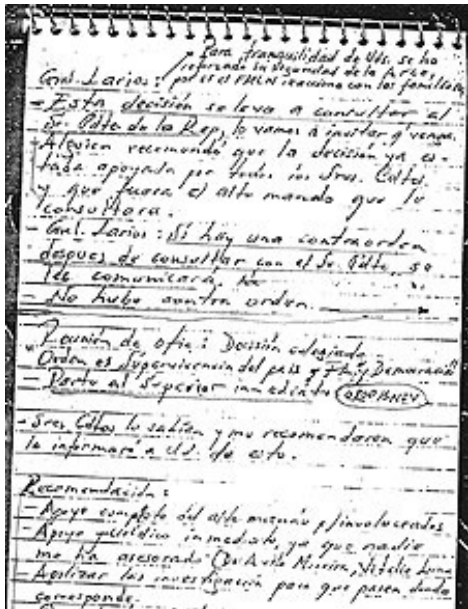 Para tranquilidad de Uds. se ha
reforzado la seguridad de la Arce,
Gral. Larios: por si el FMLN reacciona con los familiares
- Esta decisión se leva a consultar al
Sr. Pdte de la Rep, lo vamos a invitar q' venga.
- Alguien recomendó que la decisión ya es-
taba apoyada por todos los Sres. Cdtes.
y que fuera el alto mando que lo
consultara.
- Gral. Larios: Si hay una contraorden
despues de consultar con el Sr. Pdte, se
les comunicará,
- No hubo contra orden.
Reunión de ofic: Decisión colegiada
Orden es Supervivencia del pais y Democracia"
- Parte al Superior inmediato
- Sres Cdtes lo sabían y me recomendaron que
le informara a Ud. de esto.
Recomendación:
- Apoyo completo del alto mando p/involucrados
- Apoyo jurídico inmediato, ya que nadie
me ha asesorado
- Agilizar las investigación para que pasen donde
corresponde.